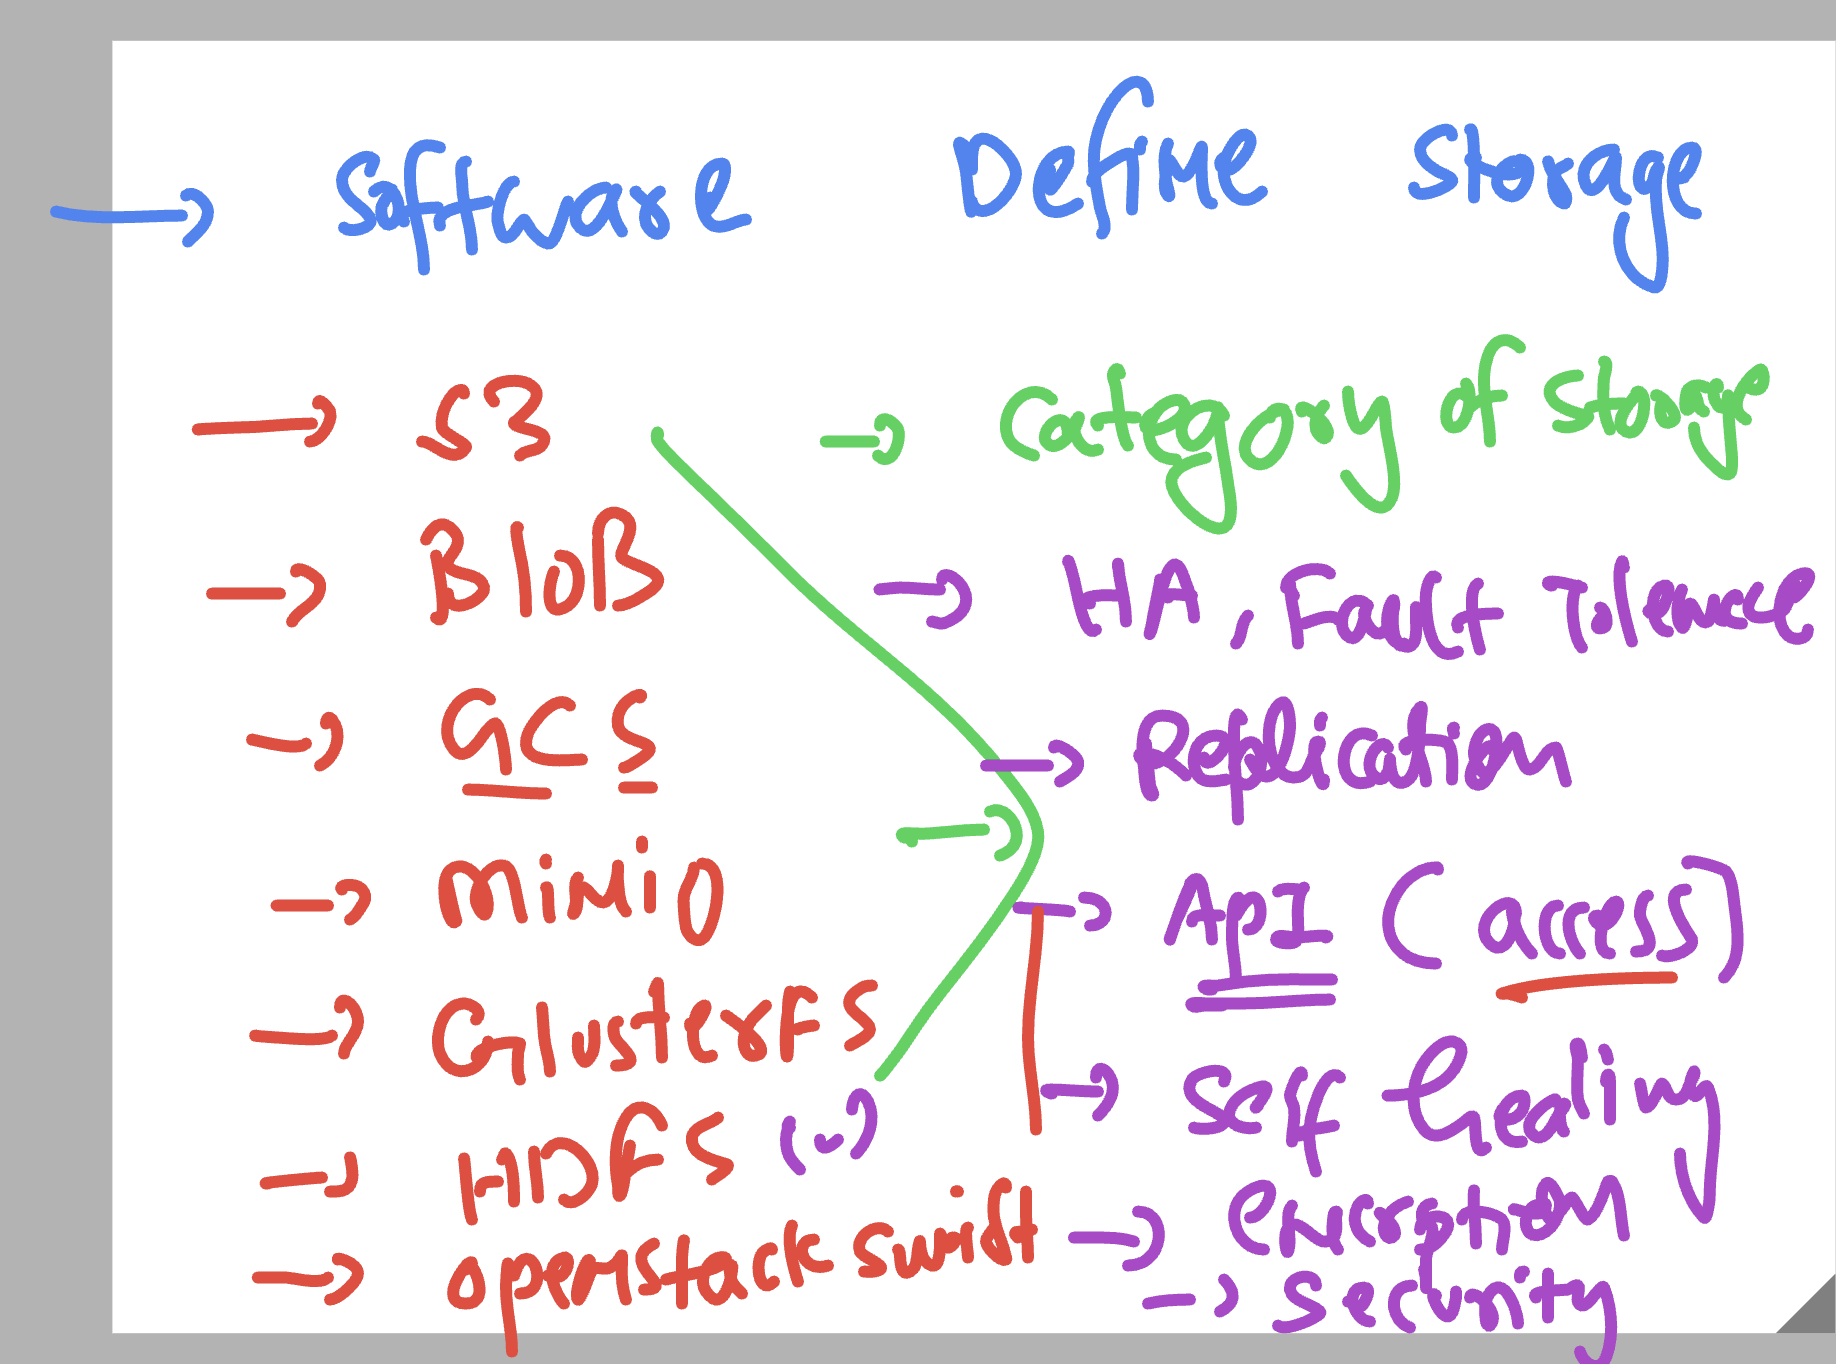 → Software Define Storage
→ S3
→ BloB
→ GCS
→ MiniO
→ GlusterFS
→ HDFS (✓)
→ openstack swift
→ Category of Storage
→ HA, Fault Tolerance
→ Replication
→ API (access)
→ Self healing
→ encryption
→ Security